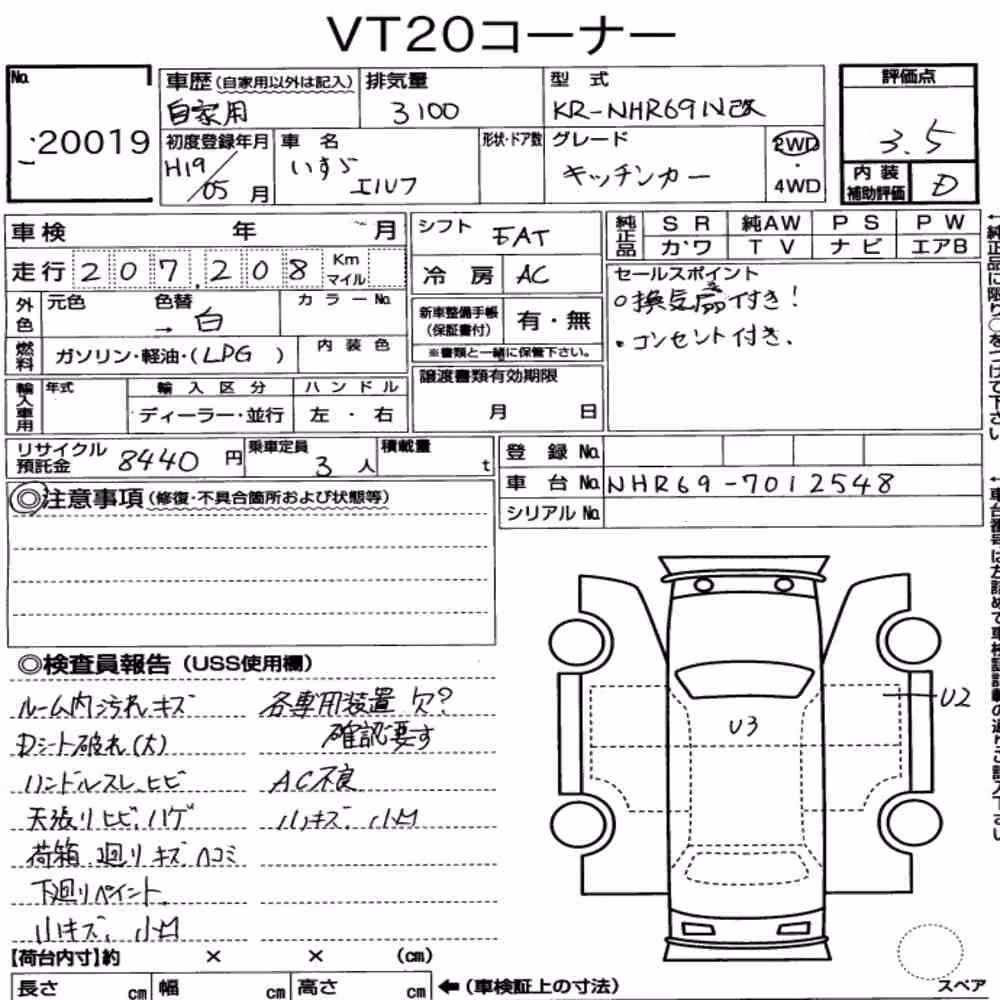 VT20コーナー
No.
20019
車歴(自家用以外は記入)
自家用
排気量
3100
型式
KR-NHR69N改
評価点
3.5
内装補助評価
D
初度登録年月
H19/05月
車名
いすゞ
エルフ
形状・ドア数
グレード
キッチンカー
2WD
・
4WD
車検 年 月
走行 207,208 Km マイル
外色 元色 色替 → 白 カラーNo.
燃料 ガソリン・軽油・(LPG) 内装色
輸入車用 年式 輸入区分 ハンドル
ディーラー・並行 左・右
シフト FAT
冷房 AC
新車整備手帳(保証書付) 有・無
※書類と一緒に保管下さい。
譲渡書類有効期限
月 日
純正品 SR 純AW PS PW
カワ TV ナビ エアB
セールスポイント
○換気扇付き!
・コンセント付き.
←純正品に限り○をつけて下さい
リサイクル預託金 8440円
乗車定員 3人
積載量 t
登録No.
車台No. NHR69-7012548
シリアルNo.
◎注意事項(修復・不具合箇所および状態等)
◎検査員報告(USS使用欄)
ルーム内汚れ.キズ
Dシート破れ(大)
ハンドルスレ.ヒビ
天張リヒビ.ハゲ
荷箱.廻リキズ.ヘコミ
下廻リペイント.
小キズ.小凹
各専用装置 欠?
確認要す
AC不良
小キズ.小凹
U3
U2
スペア
【荷台内寸】約 × × (cm)
長さ cm 幅 cm 高さ cm ←(車検証上の寸法)